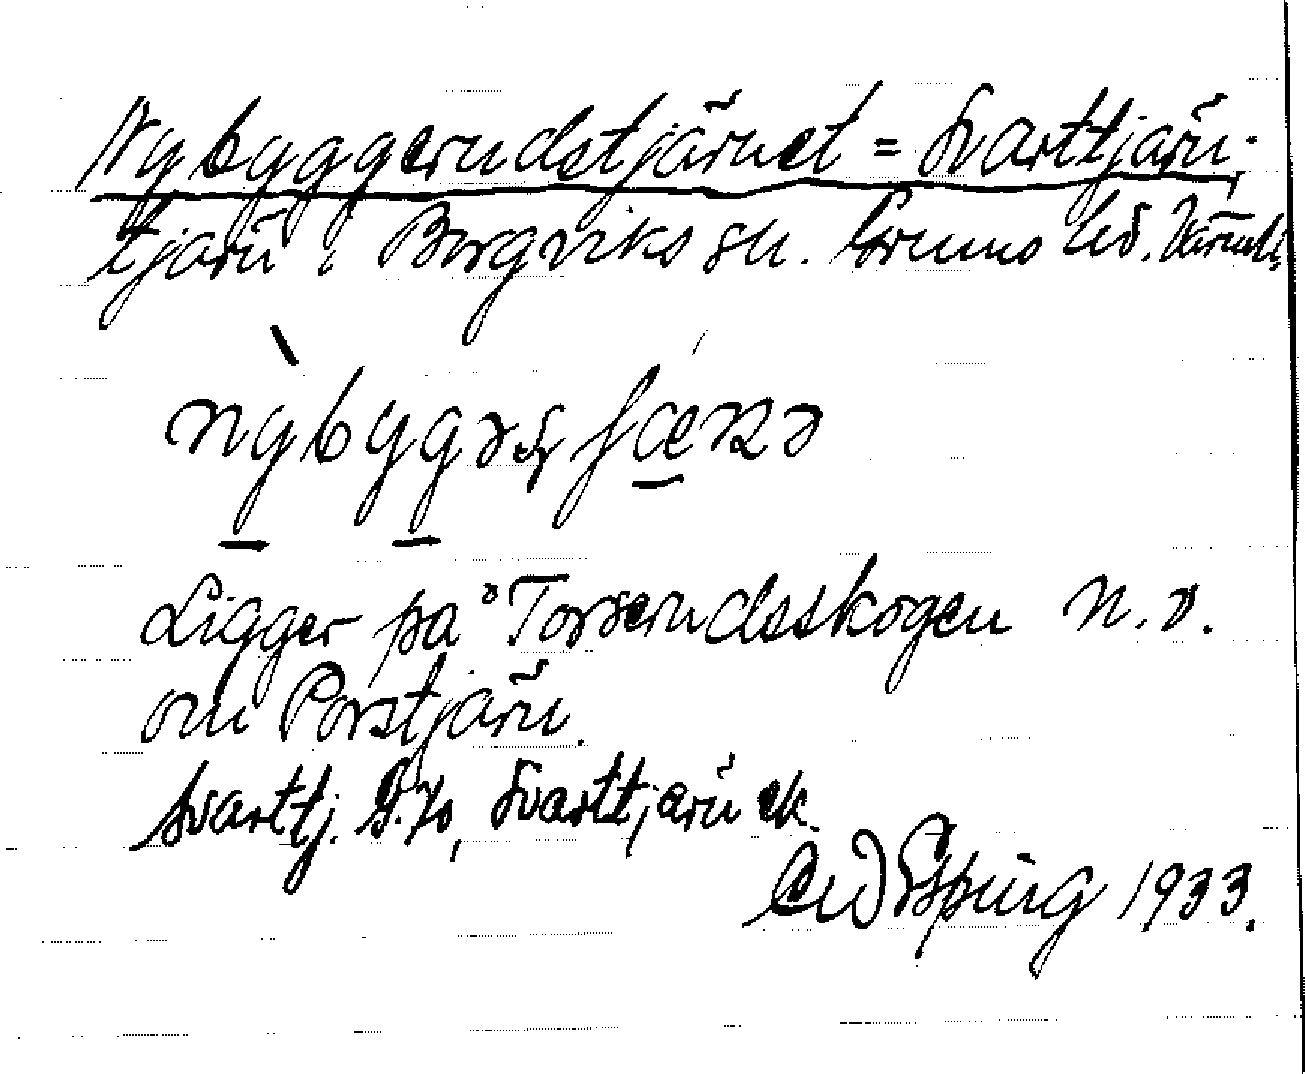 Nybyggerudstjärnet = Svarttjärn,
tjärn i Borgviks sn. Grums hd. Värml.
nỳbygəʂʃæɴə
Ligger på Torserudsskogen n.v.
om Porstjärn.
Svarttj. G.K., Svarttjärn ek.
1933.